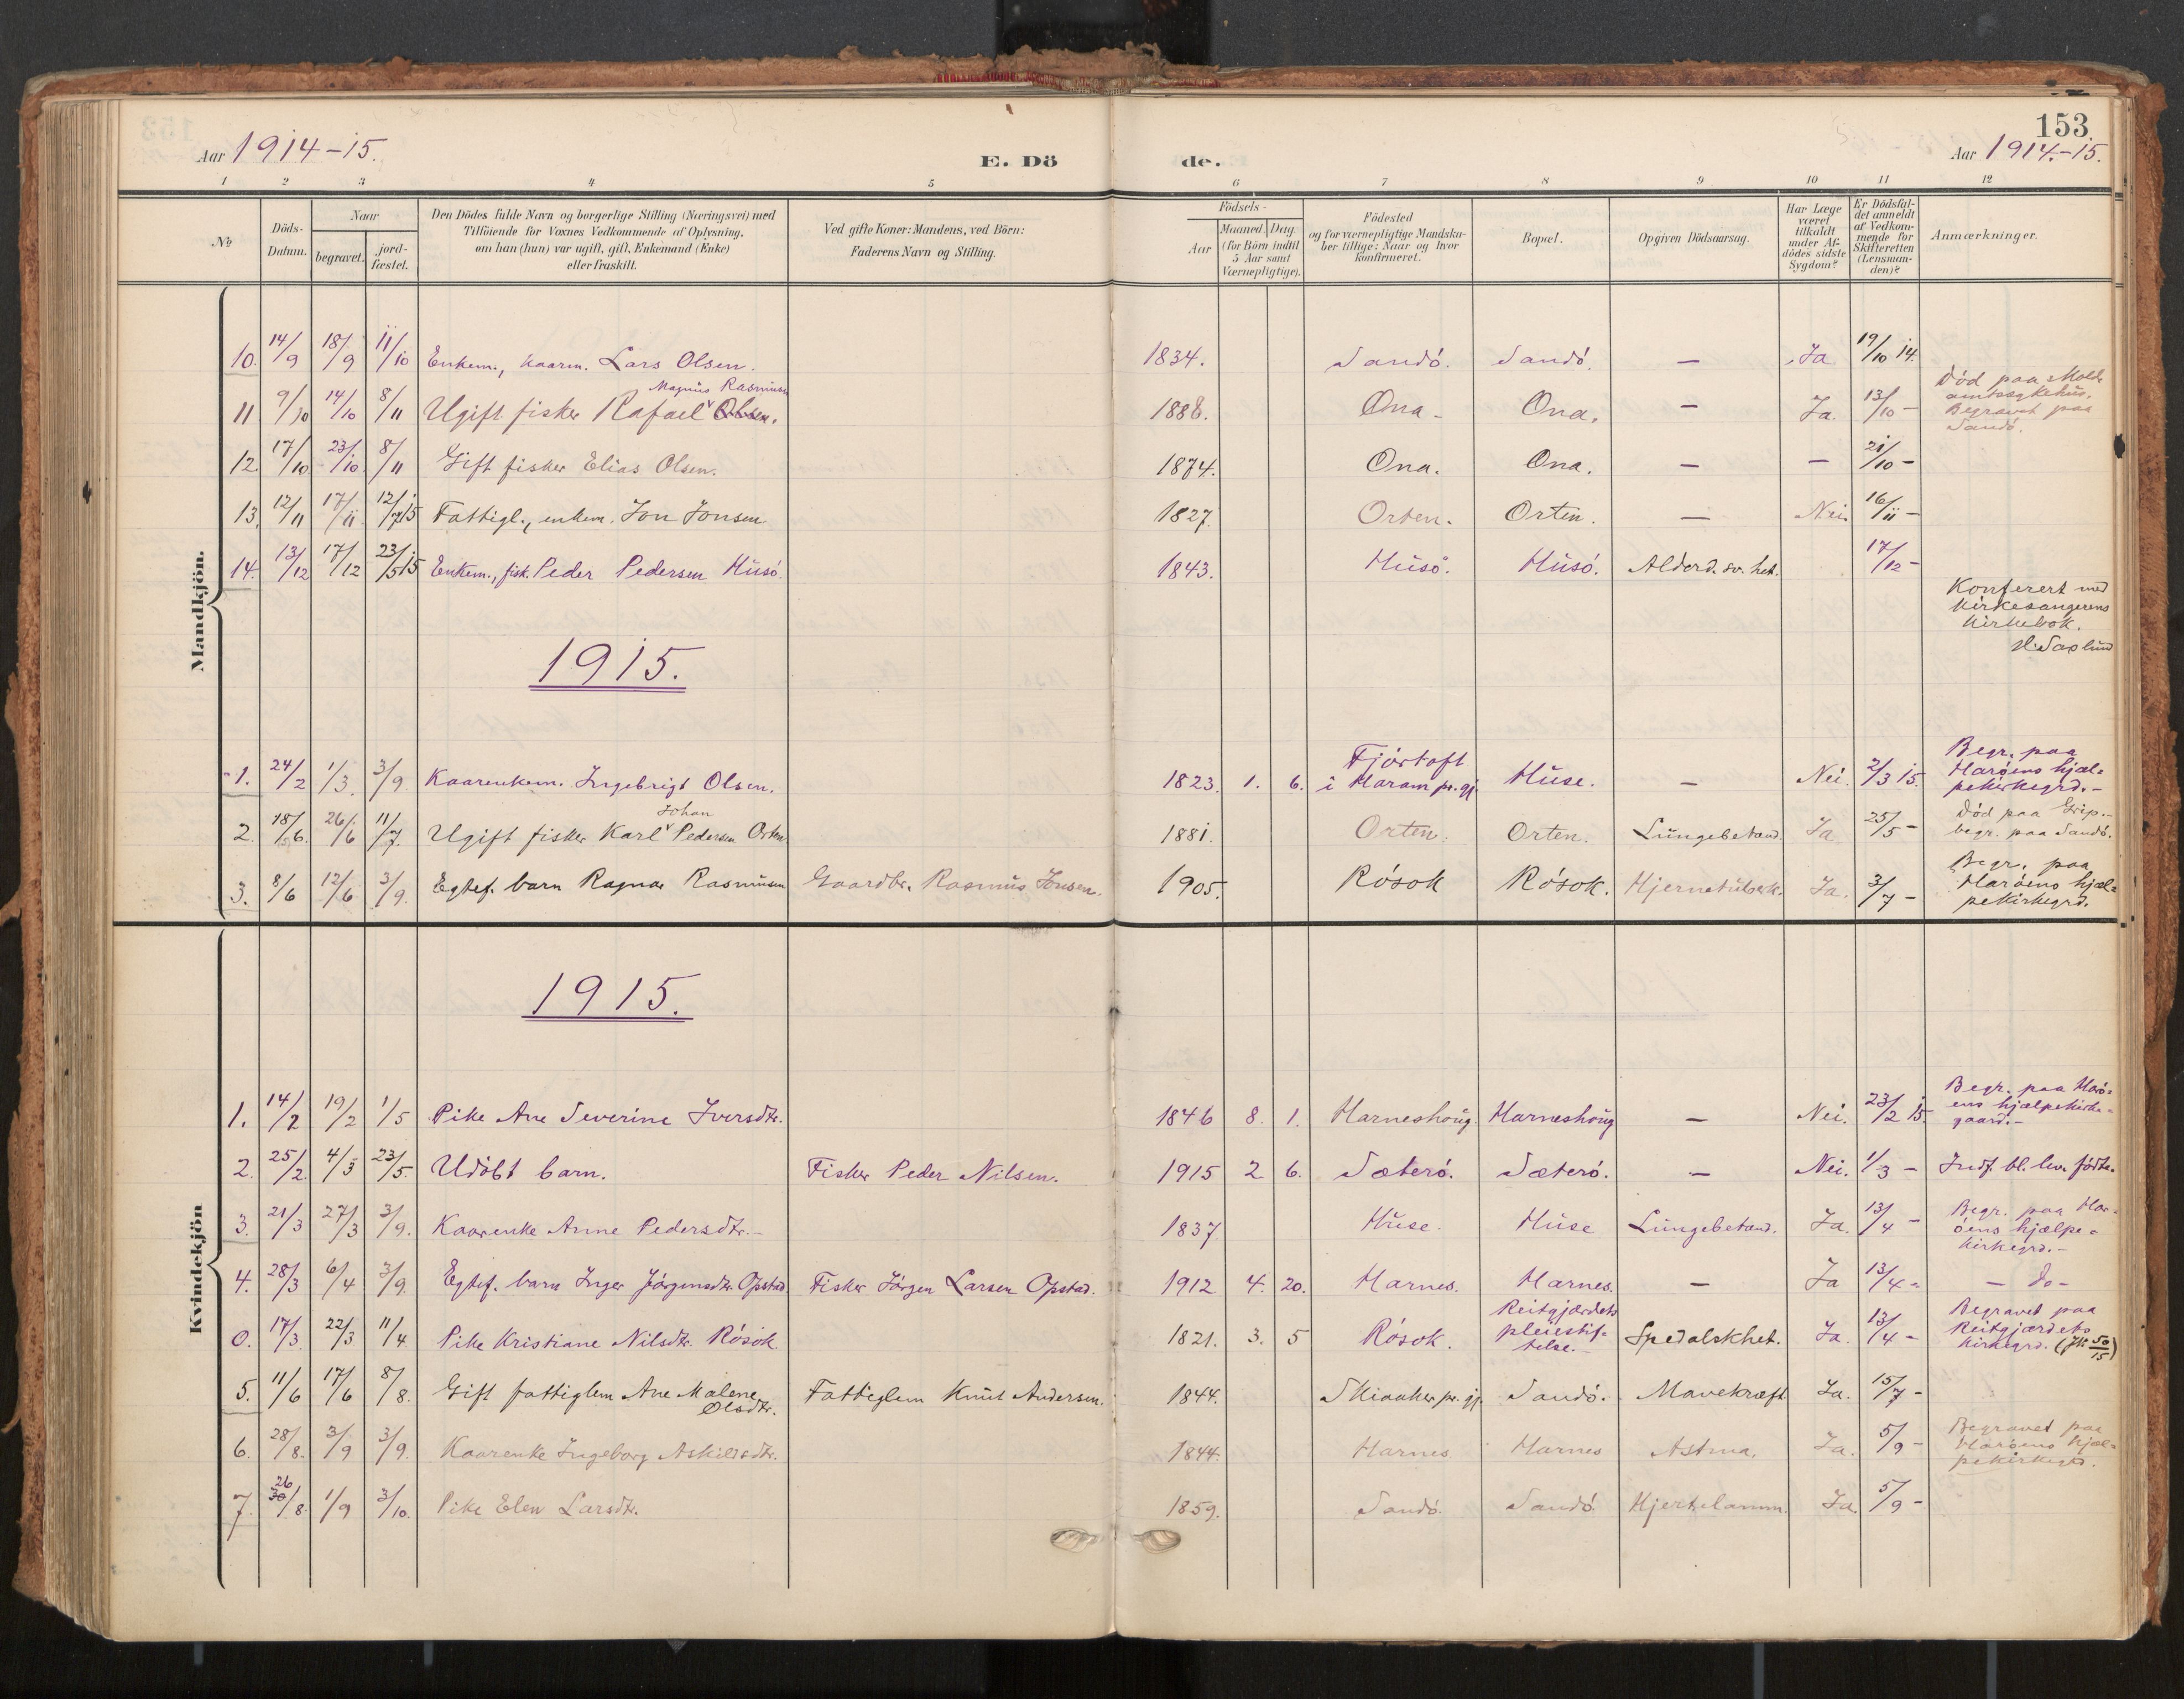 153
Aar 1914-15.
E. Döde.
Aar 1914.-15.
1 2 3 4 5 6 7 8 9 10 11 12
No
Döds-Datum.
Naar
begravet.
jord-fæstet.
Den Dödes fulde Navn og borgerlige Stilling (Næringsvei) med
Tilföiende for Voxnes Vedkommende af Oplysning,
om han (hun) var ugift, gift, Enkemand (Enke)
eller fraskilt.
Ved gifte Koner: Mandens, ved Börn:
Faderens Navn og Stilling.
Födsels-
Aar
Maaned. Dag.
(for Börn indtil
5 Aar samt
Værnepligtige).
Födested
og for værnepligtige Mandska-
ber tillige: Naar og hvor
konfirmeret.
Bopæl.
Opgiven Dödsaarsag.
Har Læge
været
tilkaldt
under Af-
dödes sidste
Sygdom?
Er Dödsfal-
det anmeldt
af Vedkom-
mende for
Skifteretten
(Lensman-
den)?
Anmærkninger.
Mandkjön.
10. 14/9 18/9 11/10 Enkem., kaarm. Lars Olsen. 1834. Sandö. Sandö. — Ja 19/10 14.
Magnus Rasmusen
11 9/10 14/10 8/11 Ugift fisker Rafael Olsen. 1888. Ona. Ona. — Ja. 13/10 — Död paa Molde
amtssykehus.
Begravet paa
Sandö.
12 17/10 23/10 8/11 Gift fisker Elias Olsen. 1874. Ona. Ona. — — 21/10 —
13. 12/11 17/11 12/7 15 Fattigl., enkem. Jon Jonsen 1827. Orten. Orten. — Nei. 16/11 —
14. 13/12 17/12 23/5 15 Enkem., fisk. Peder Pedersen Husö. 1843. Husö. Husö. Alderd.sv.het. 17/12 —
Konferert med
kirkesangerens
kirkebok.
1915.
1. 24/2 1/3. 3/9. Kaarenkem. Ingebrigt Olsen. 1823. 1. 6. Fjörtoft
i Haram pr.gj. Huse. — Nei. 2/3 15. Begr. paa
Haröens hjæl-
pekirkegrd.—
Johan
2. 18/6. 26/6 11/7. Ugift fisker Karl Pedersen Orten 1881. Orten. Orten. Lungebetænd. Ja 25/5 — Död paa Grip.—
begr. paa Sandö.
3. 8/6 12/6 3/9. Egtef. barn Ragnar Rasmusen Gaardbr. Rasmus Jonsen. 1905. Rösok Rösok. Hjernetuberk. Ja. 3/7 — Begr. paa
Haröens hjæl-
pekirkegrd.
Kvindekjön
1915.
1. 14/2 19/2 1/5 Pike Ane Severine Iversdtr. 1846 8. 1. Harneshoug. Harneshoug — Nei. 23/2 15. Begr. paa Harö-
ens hjælpekirke-
gaard.—
2. 25/2. 4/3 23/5. Udöbt barn. Fisker Peder Nilsen. 1915 2 6. Sæterö. Sæterö. — Nei. 1/3 — Indf. bl. lev. födte.
3. 21/3 27/3 3/9. Kaarenke Anne Pedersdtr.— 1837 Huse. Huse Lungebetænd. Ja. 13/4 — Begr. paa Har-
öens hjælpe-
kirkegrd.—
4. 28/3 6/4 3/9. Egtef. barn Inger Jörgensdtr. Opstad. Fisker Jörgen Larsen Opstad. 1912 4. 20. Harnes. Harnes. — Ja 13/4 — — do —
0. 17/3. 22/3 11/4 Pike Kristiane Nilsdtr. Rösok. 1821. 3. 5 Rösok. Reitgjærdets
pleiestif-
telse.— Spedalskhet. Ja. 13/4 — Begravet paa
Reitgjærdets
kirkegrd. (jr. 50/15)
5. 11/6 17/6 8/8. Gift fattiglem Ane Malene
Olsdtr. Fattiglem Knut Andersen. 1844. Skiaaker pr.gj. Sandö. Mavekræft Ja. 15/7 —
6. 28/8. 3/9 3/9. Kaarenke Ingeborg Askildsdtr. 1844. Harnes Harnes Astma. Ja. 5/9 — Begravet paa
Haröens hjæl-
pekirkegrd.
7. 26 30/8. 1/9 3/10. Pike Elen Larsdtr. 1859. Sandö. Sandö Hjertelamm. Ja 5/9 —